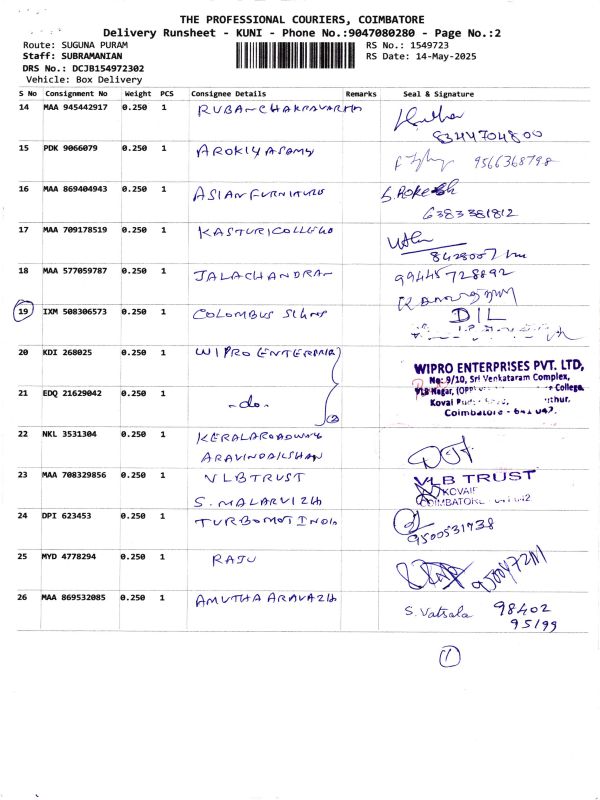 THE PROFESSIONAL COURIERS, COIMBATORE
Delivery Runsheet - KUNI - Phone No.:9047080280 - Page No.:2
Route: SUGUNA PURAM RS No.: 1549723
Staff: SUBRAMANIAN RS Date: 14-May-2025
DRS No.: DCJB154972302
Vehicle: Box Delivery
S No Consignment No Weight PCS Consignee Details Remarks Seal & Signature
14 MAA 945442917 0.250 1 RUBANCHAKRAVARTH
8344704800
15 PDK 9066079 0.250 1 AROKIYASAMY 9566368798
16 MAA 869404943 0.250 1 ASIAN FURNITURE
6383381812
17 MAA 709178519 0.250 1 KASTURI COLLEGE
18 MAA 577059787 0.250 1 JALACHANDRAN 99445728892
19 IXM 508306573 0.250 1 COLOMBUS SIGNS DIL
20 KDI 268025 0.250 1 WIPRO ENTERPRIS
WIPRO ENTERPRISES PVT. LTD,
No: 9/10, Sri Venkataram Complex,
VLB Nagar, College,
21 EDQ 21629042 0.250 1 -do- (2)
Coimbatore - 641 042.
22 NKL 3531304 0.250 1 KERALAROADWAYS
ARAVINDAKSHAN
23 MAA 708329856 0.250 1 VLBTRUST VLB TRUST
KOVAI
COIMBATORE
S. MALARVIZH
24 DPI 623453 0.250 1 TURBOMOT INDIA
9500531738
25 MYD 4778294 0.250 1 RAJU
26 MAA 869532085 0.250 1 AMUTHA ARAVAZH S. Vatsala 98402
95199
1